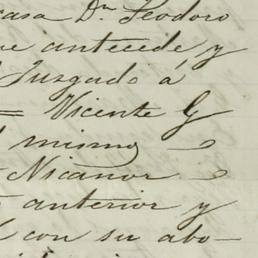 casa Dn Teodoro
que antecede, y
Juzgado á
= Vicente G
mismo
Nicanor
anterior y
con su abo–